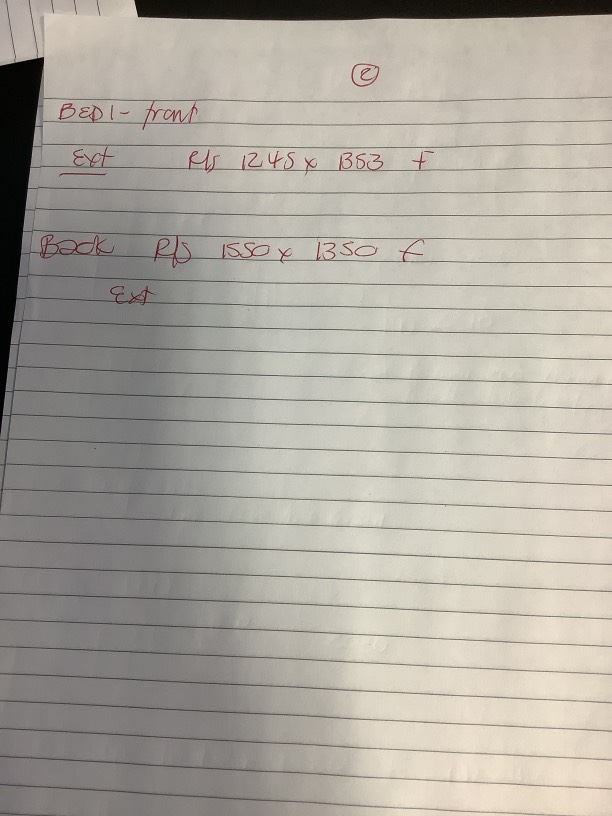 2
BED 1 - front
Ext R/S 1245 x 1353 f
Back R/S 1550 x 1350 f
Ext